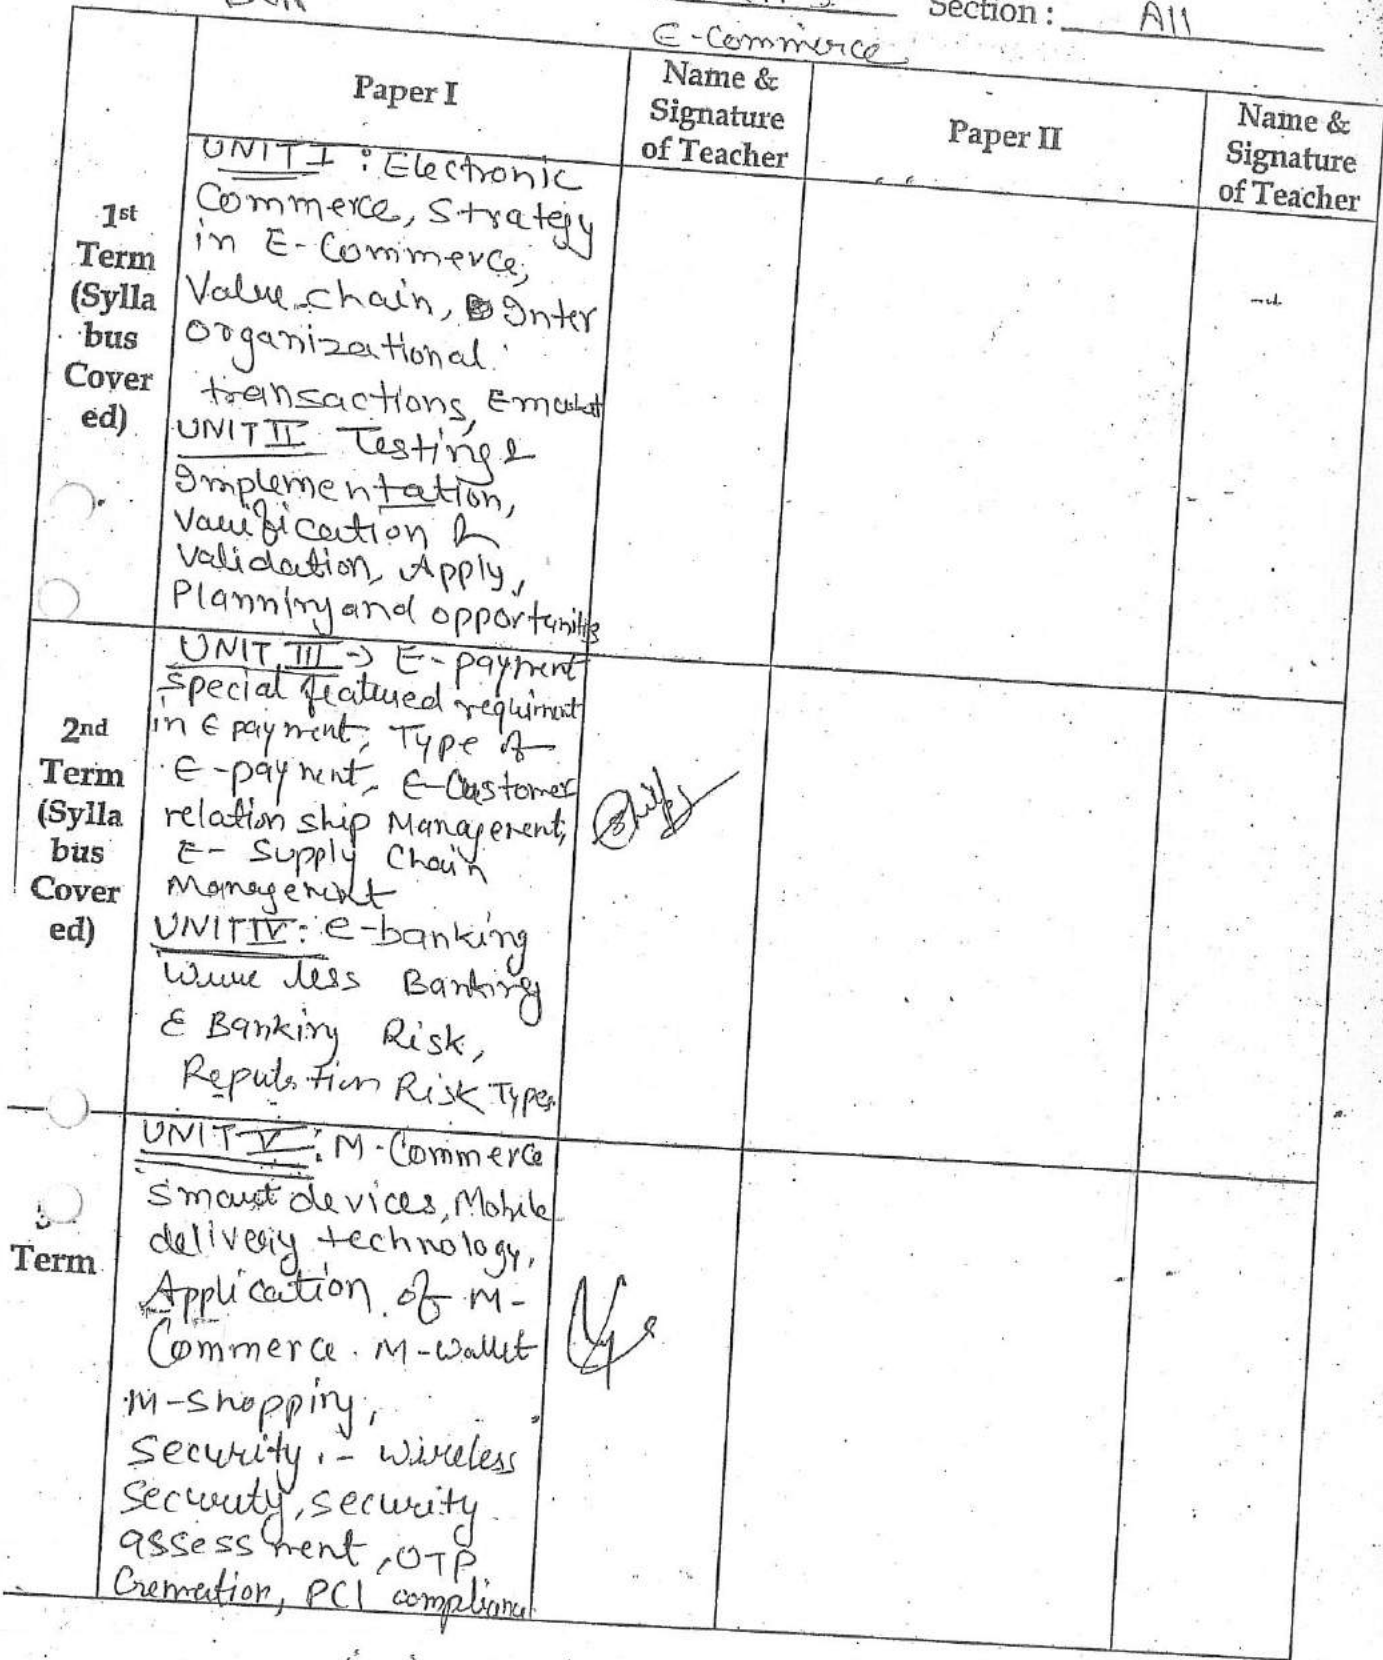 Section : All
E-Commerce
Paper I
Name &
Signature
of Teacher
Paper II
Name &
Signature
of Teacher
1st
Term
(Sylla
bus
Cover
ed)
UNIT I : Electronic
Commerce, Strategy
in E-Commerce,
Value chain, Inter
organizational
transactions,
UNIT II Testing &
Implementation,
Varification &
Validation, Apply,
Planning and opportunities
2nd
Term
(Sylla
bus
Cover
ed)
UNIT III → E-payment
special featured requirment
in E payment, Type of
E-payment, E-Customer
relation ship Management,
E- Supply Chain
Management
UNIT IV : e-banking
less Banking
E Banking Risk,
Reputation Risk Types
Term
UNIT V : M-Commerce
Smart devices, Mobile
delivery technology,
Application of M-
Commerce. M-wallet
M-shopping,
Security :- wireless
Security, security
assessment, OTP
PCI compliance